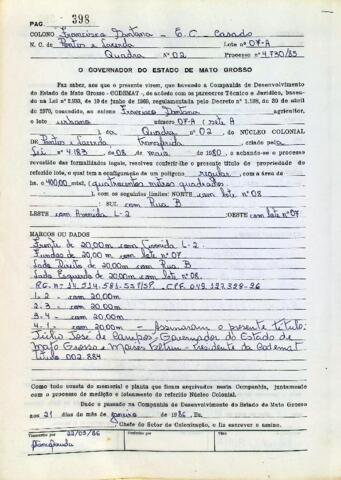 PAG. 398
COLONO Francisco Dontana - E.C. Casado
N. C. de Pontes e Lacerda Lote nº 07-A
Quadra Nº 02 Processo nº 4.730/85
O GOVERNADOR DO ESTADO DE MATO GROSSO
Faz saber, aos que o presente virem, que havendo a Companhia de Desenvolvimento
do Estado de Mato Grosso - CODEMAT, de acordo com os pareceres Técnico e Jurídico, baseado
na Lei nº 2.933, de 19 de junho de 1969, regulamentada pelo Decreto nº 1.138, de 29 de abril
de 1970, concedido, ao colono Francisco Dontana agricultor,
o lote urbano número 07-A (sete A)
da Quadra nº 02, do NÚCLEO COLONIAL
DE Pontes e Lacerda transferida criado pela
Lei nº 4.167 de 08 de maio de 1980, e achando-se o processo
revestido das formalidades legais, resolveu conferir-lhe o presente título de propriedade do
referido lote, o qual tem a configuração de um polígono regular, com a área de
hs. 400,00 mts2 (quatrocentos metros quadrados)
com os seguintes limites: NORTE com lote nº 08
SUL com Rua B
LESTE com Avenida L-2 OESTE com lote nº 07
MARCOS OU DADOS
Frente de 20,00m com Avenida L-2.
Fundos de 20,00m com lote nº 07
Lado Direito de 20,00m com Rua B
Lado Esquerdo de 20,00m com lote nº 08.
R.G. nº 14.214.581-SSP/SP. CPF. 049.127.328-26
1. 2 - com 20,00m
2. 3 - com 20,00m
3. 4 - com 20,00m
4. 1 - com 20,00m - Assinaram o presente título:
Júlio José de Campos - Governador do Estado de
Mato Grosso e Moisés Feltrin - Presidente da Codemat
Título 002.884
Como tudo consta do memorial e planta que ficam arquivados nesta Companhia, juntamente
com o processo de medição e loteamento do referido Núcleo Colonial.
Dado e passado na Companhia de Desenvolvimento do Estado de Mato Grosso
aos 21 dias do mês de janeiro de 1986. Eu,
Chefe do Setor de Colonização, o fiz escrever e assino.
Transcrito por 22/05/86
Conferido por